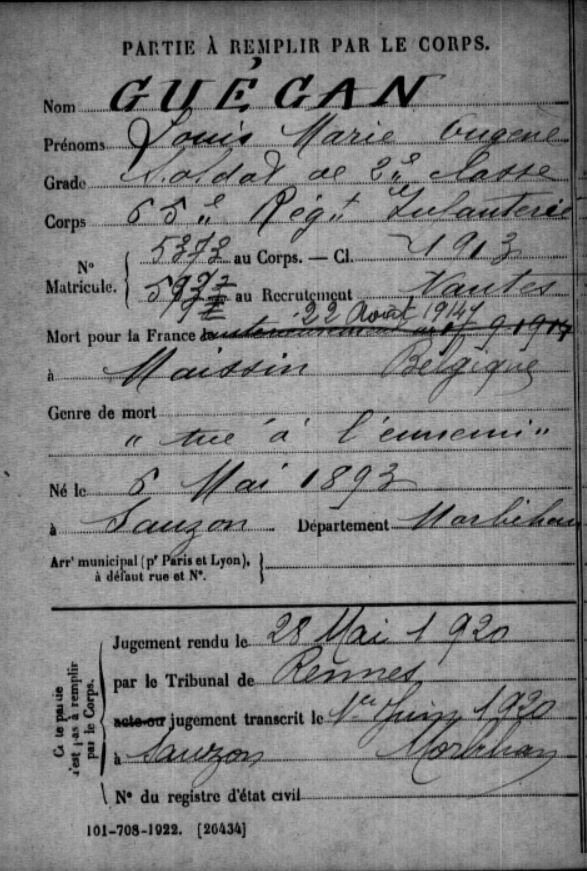 PARTIE À REMPLIR PAR LE CORPS.
Nom GUÉGAN
Prénoms Louis Marie Eugène
Grade Soldat de 2e classe
Corps 65e Régt Infanterie
N° Matricule. 5373 au Corps. — Cl. 1913
au Recrutement Nantes
22 Août 1914
Mort pour la France le antérieurement au 9 1914
à Maissin Belgique
Genre de mort
"tué à l'ennemi"
Né le 6 Mai 1893
à Sauzon Département Morbihan
Arrt municipal (pr Paris et Lyon),
à défaut rue et N°.
Cette partie n'est pas à remplir par le Corps.
Jugement rendu le 28 Mai 1920
par le Tribunal de Rennes
acte ou jugement transcrit le 1er Juin 1920
à Sauzon Morbihan
N° du registre d'état civil
101-708-1922. [26434]